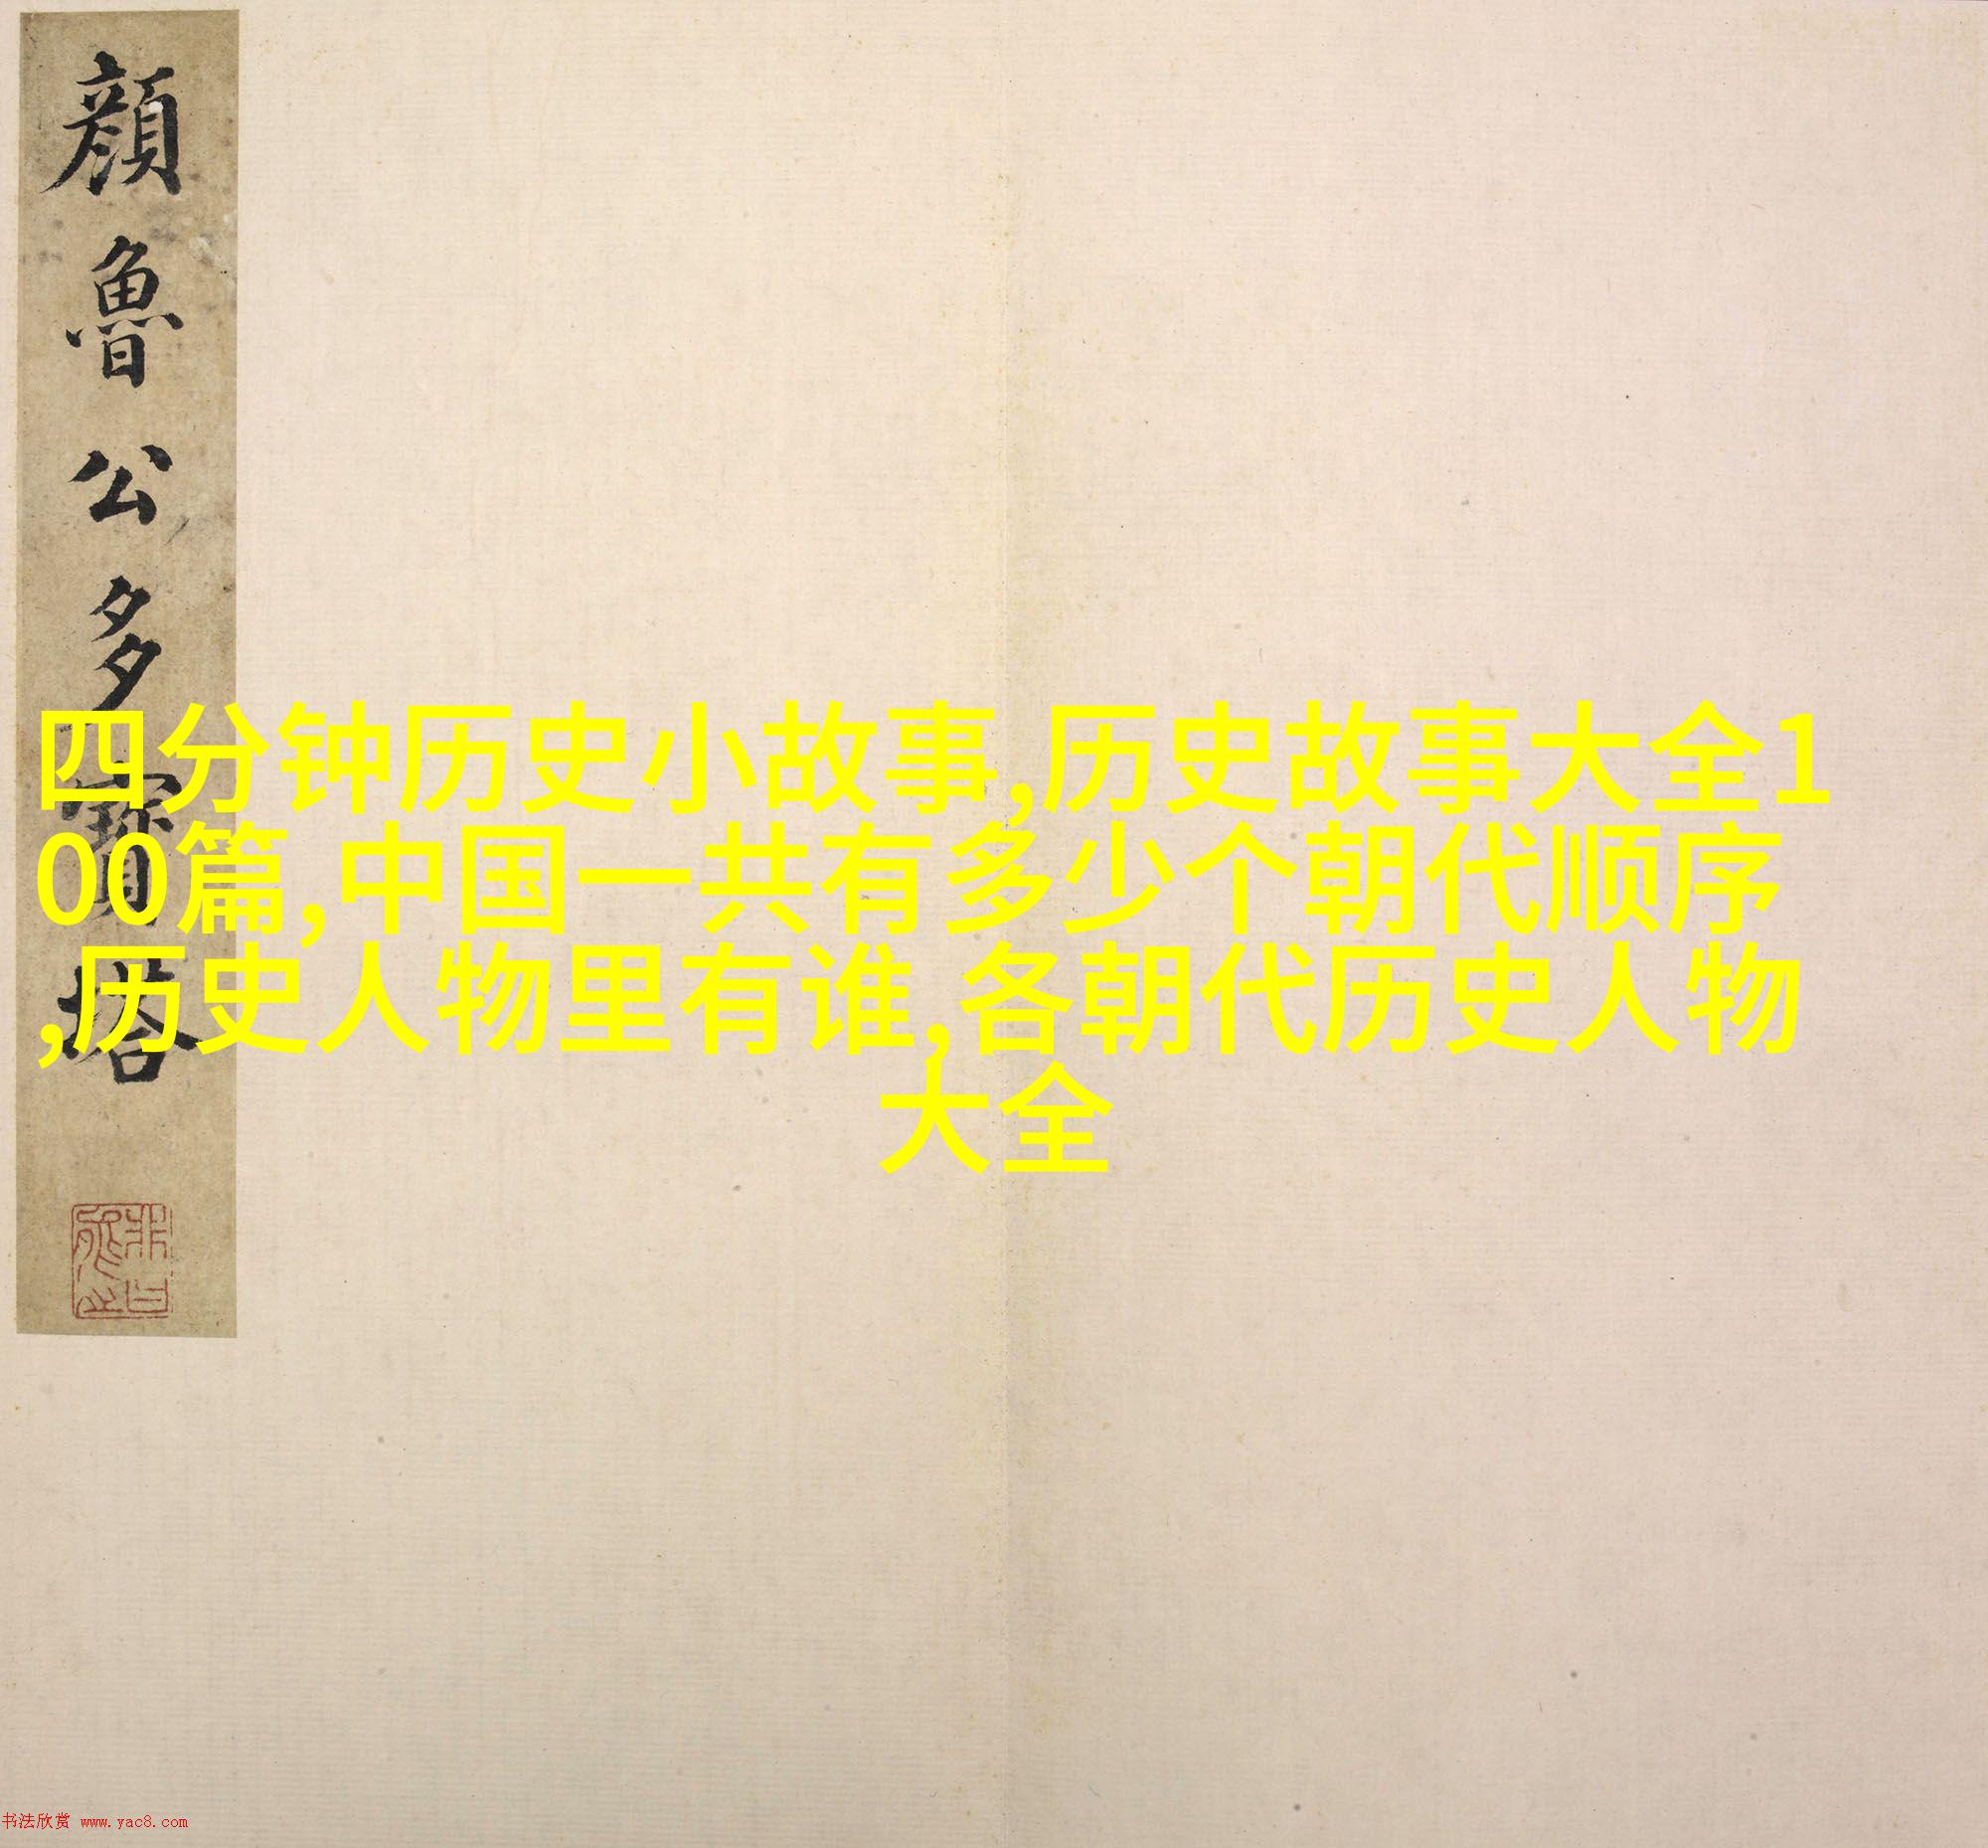 顔魯公多寳塔
四分钟历史小故事,历史故事大全1
00篇,中国一共有多少个朝代顺序
,历史人物里有谁,各朝代历史人物
大全
书法欣赏 www.yac8.com